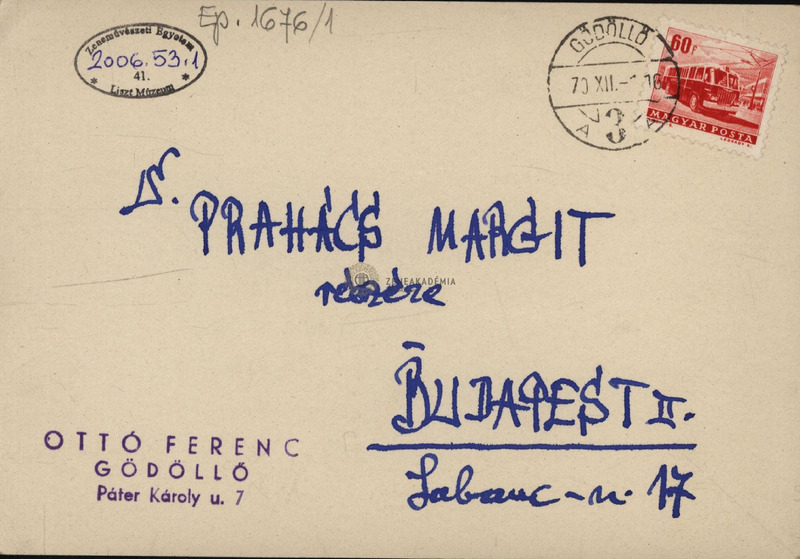 Ep. 1676/1
Zeneművészeti Egyetem
2006.53.1
41.
Liszt Múzeum
GÖDÖLLŐ
70 XII.
3
A
60f
MAGYAR POSTA
PRAHÁCS MARGIT
ZENEAKADÉMIA
részére
BUDAPEST II.
Labanc-u. 17
OTTÓ FERENC
GÖDÖLLŐ
Páter Károly u. 7